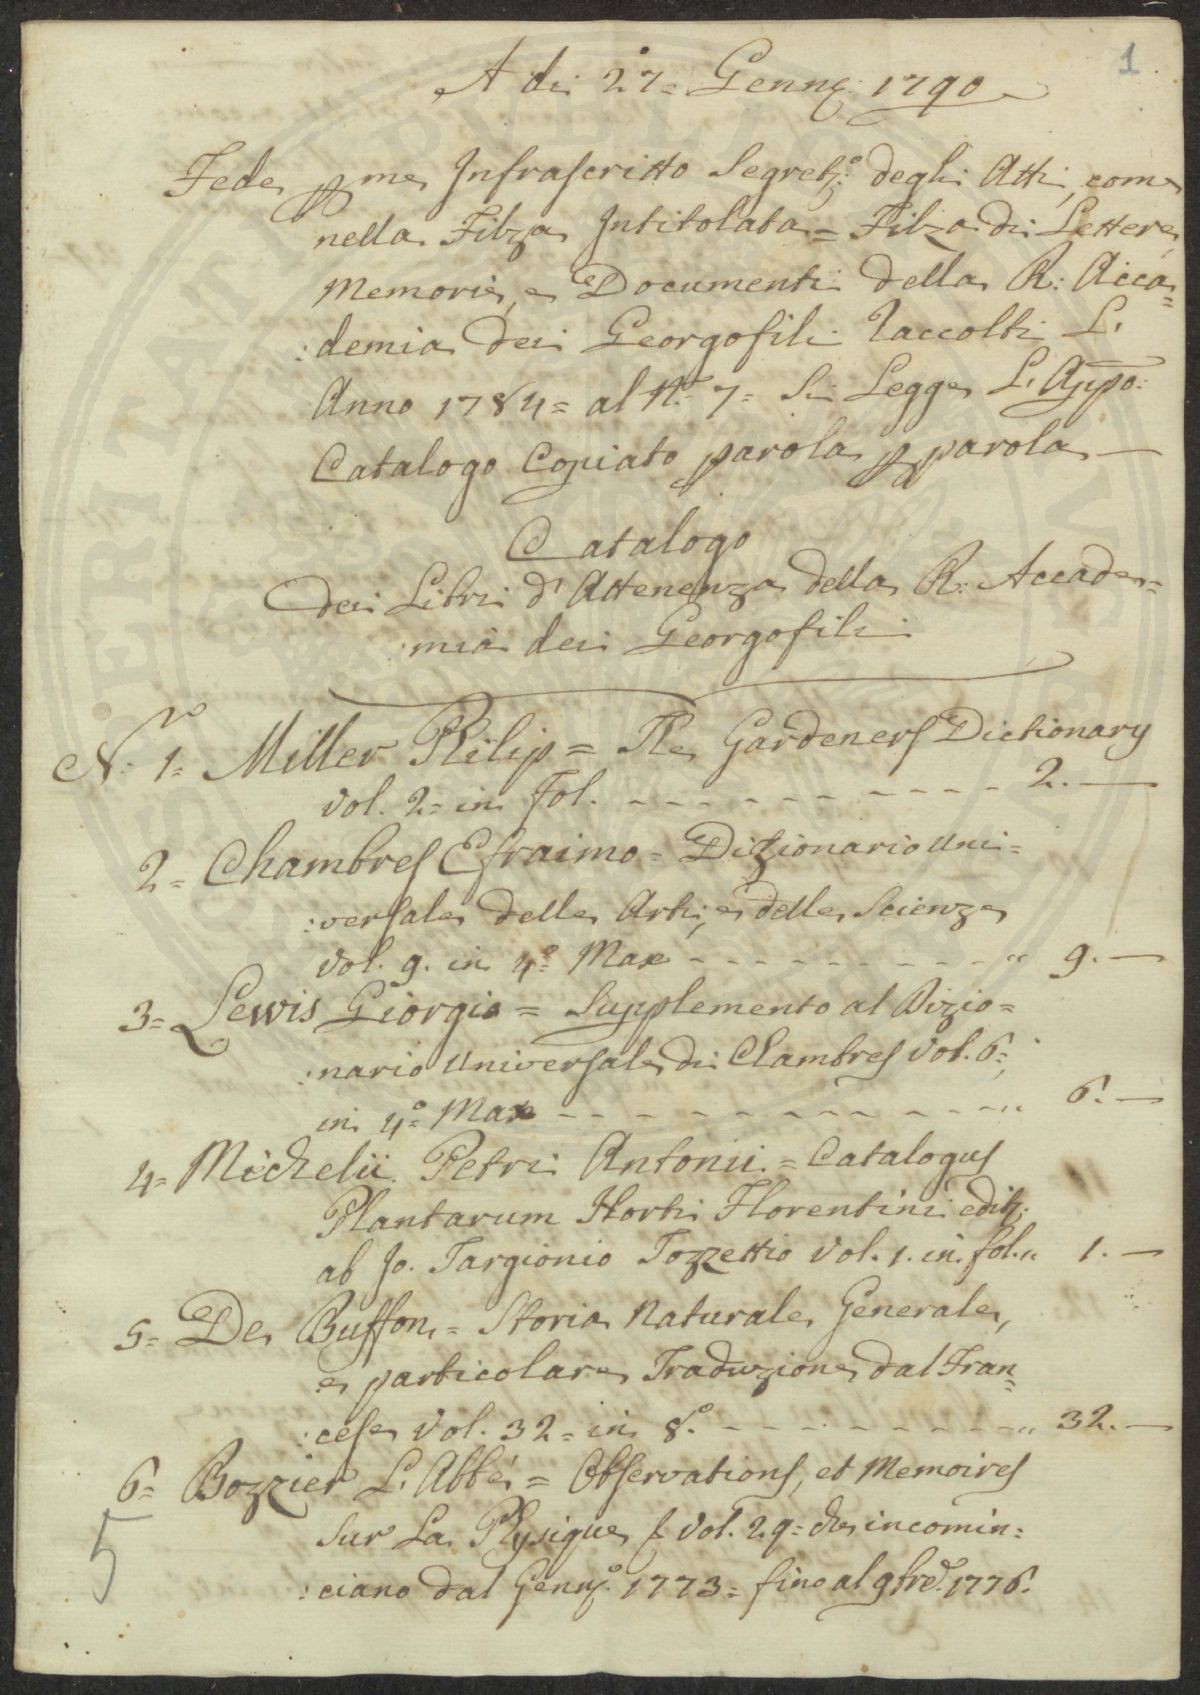 1
A di 27= Gennº: 1790
Fede p me Infrascritto Segretº: degli Atti, come
nella Filza Intitolata = Filza di Lettere,
Memorie, e Documenti della R: Acca=
:demia dei Georgofili Raccolti L'
Anno 1784= al Nº 7= Si Legge L'Appº:
Catalogo Copiato parola p parola
Catalogo
dei Libri d'Attenenza della R: Accade=
:mia dei Georgofili
Nº: 1= Miller Philip = The Gardeners Dictionary
vol. 2= in fol. - - - - - - - - - - - 2.—
2= Chambres Efraimo = Dizionario Uni=
:versale delle Arti, e delle Scienze
vol. 9. in 4º Max - - - - - - - - - - " 9.—
3= Lewis Giorgio = Supplemento al Dizio=
:nario Universale di Chambres vol. 6=,
in 4º Max - - - - - - - - - - - - " 6.—
4= Michelii Petri Antonii = Catalogus
Plantarum Horti Florentini edit:
ab Jo. Targionio Tozzettio vol. 1. in fol. " 1.—
5= De Buffon = Storia Naturale, Generale,
e particolare, Traduzione dal Fran=
:cese vol. 32= in 8º - - - - - - - - - " 32.—
6= Bozzier L'Abbé = Observations, et Memoires
sur La Physique & vol. 29= che incomin=
:ciano dal Gennº: 1773= fino al 9bre. 1776.
5